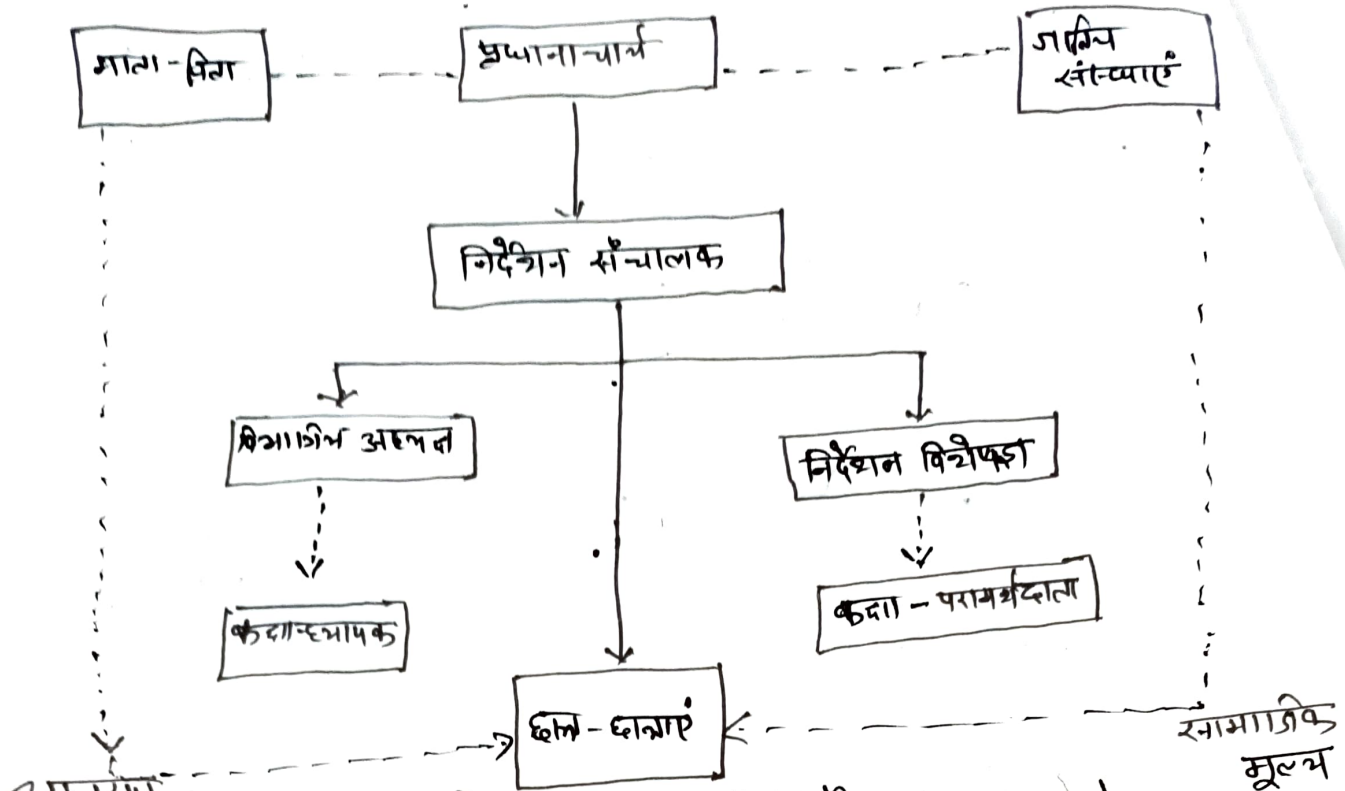 माता-पिता
प्रधानाचार्य
संस्थाएं
निर्देशन संचालक
विभागीय अध्यक्ष
निर्देशन विशेषज्ञ
कक्षाध्यापक
कक्षा-परामर्शदाता
छात्र-छात्राएं
सामाजिक
मूल्य